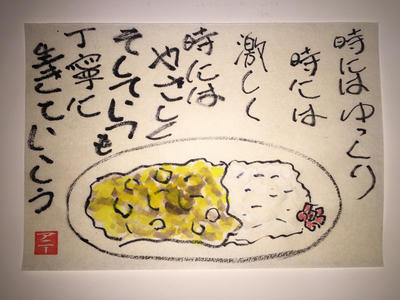 時にはゆっくり
時には
激しく
時には
やさしく
そしていつも
丁寧に
生きていこう
アニー